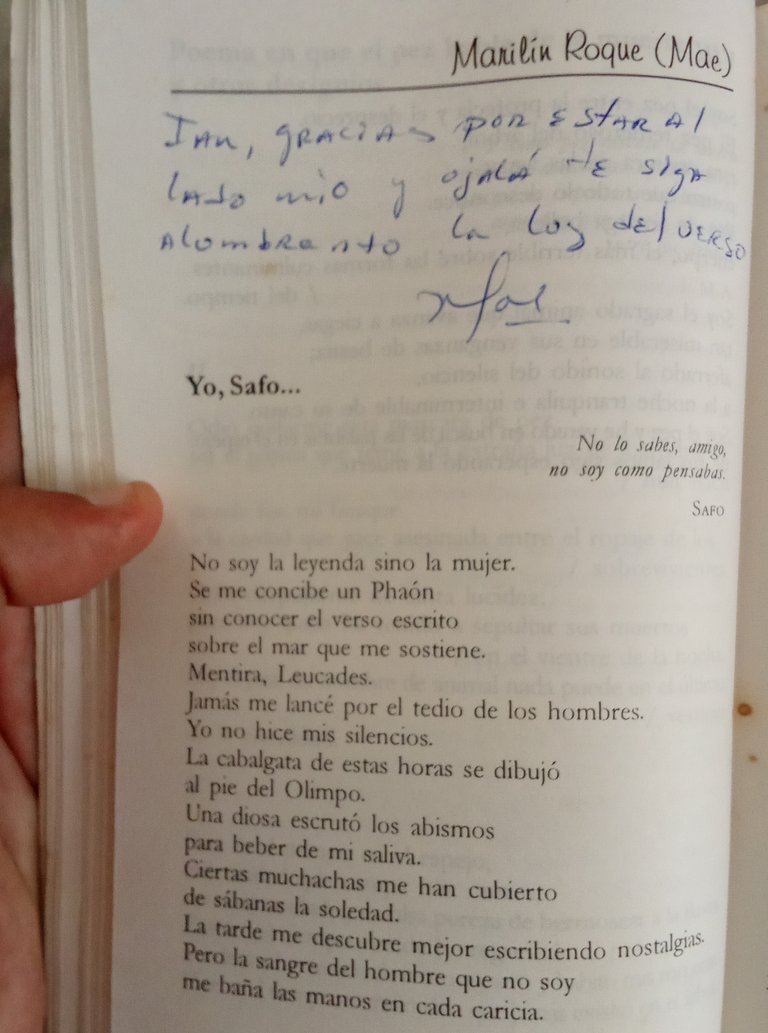 Marilín Roque (Mae)
Ian, gracias por estar al
lado mío y ojalá te siga
alumbrando la luz del verso
Mae
Yo, Safo...
No lo sabes, amigo,
no soy como pensabas.
Safo
No soy la leyenda sino la mujer.
Se me concibe un Phaón
sin conocer el verso escrito
sobre el mar que me sostiene.
Mentira, Leucades.
Jamás me lancé por el tedio de los hombres.
Yo no hice mis silencios.
La cabalgata de estas horas se dibujó
al pie del Olimpo.
Una diosa escrutó los abismos
para beber de mi saliva.
Ciertas muchachas me han cubierto
de sábanas la soledad.
La tarde me descubre mejor escribiendo nostalgias.
Pero la sangre del hombre que no soy
me baña las manos en cada caricia.